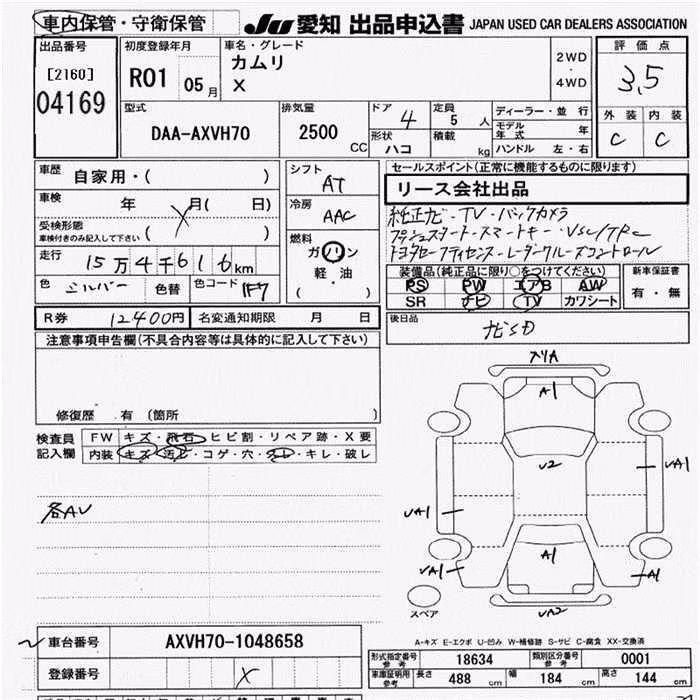 車内保管・守衛保管 JU 愛知 出品申込書 JAPAN USED CAR DEALERS ASSOCIATION
出品番号 [2160] 04169
初度登録年月 R01 05月
車名・グレード カムリ X
2WD・4WD
評価点 3.5
外装 C 内装 C
型式 DAA-AXVH70
排気量 2500 CC
ドア 4 形状 ハコ
定員 5人 積載 kg
ディーラー・並行
モデル年式 年
ハンドル 左・右
車歴 自家用・( )
車検 年 月( 日)
受検形態 車検付きのみ記入して下さい ( )
走行 15万4千616km
色 シルバー 色替 色コード 1F7
シフト AT
冷房 AAC
燃料 ガソリン 軽・油 ( )
セールスポイント(正常に機能するものに限ります)
リース会社出品
純正ナビ・TV・バックカメラ
プッシュスタート・スマートキー・VSC/TRC
トヨタセーフティセンス・レーダークルーズコントロール
装備品(純正品に限り○をつけてください) 新車保証書
PS PW エアB AW 有・無
SR ナビ TV カワシート
R券 12400円 名変通知期限 月 日
後日品 ナビSD
注意事項申告欄(不具合内容等は具体的に記入して下さい)
修復歴 有 (箇所
検査員記入欄 FW キズ・飛石・ヒビ割・リペア跡・X要
内装 キズ・汚レ・コゲ・穴・スレ・キレ・破レ
各AU
A1
U2
UA1
UA1
A1
UA1
A1
UA2
スペア
A-キズ E-エクボ U-凹み W-補修跡 S-サビ C-腐食 XX-交換済
車台番号 AXVH70-1048658
登録番号 X
形式指定番号 参考 18634 類別区分番号 参考 0001
車庫証明用 参考 長さ 488 cm 幅 184 cm 高さ 144 cm